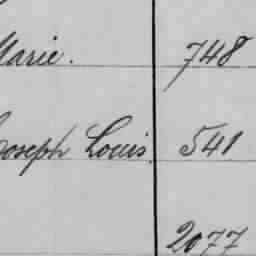 Marie. 748
Joseph Louis. 541
2077